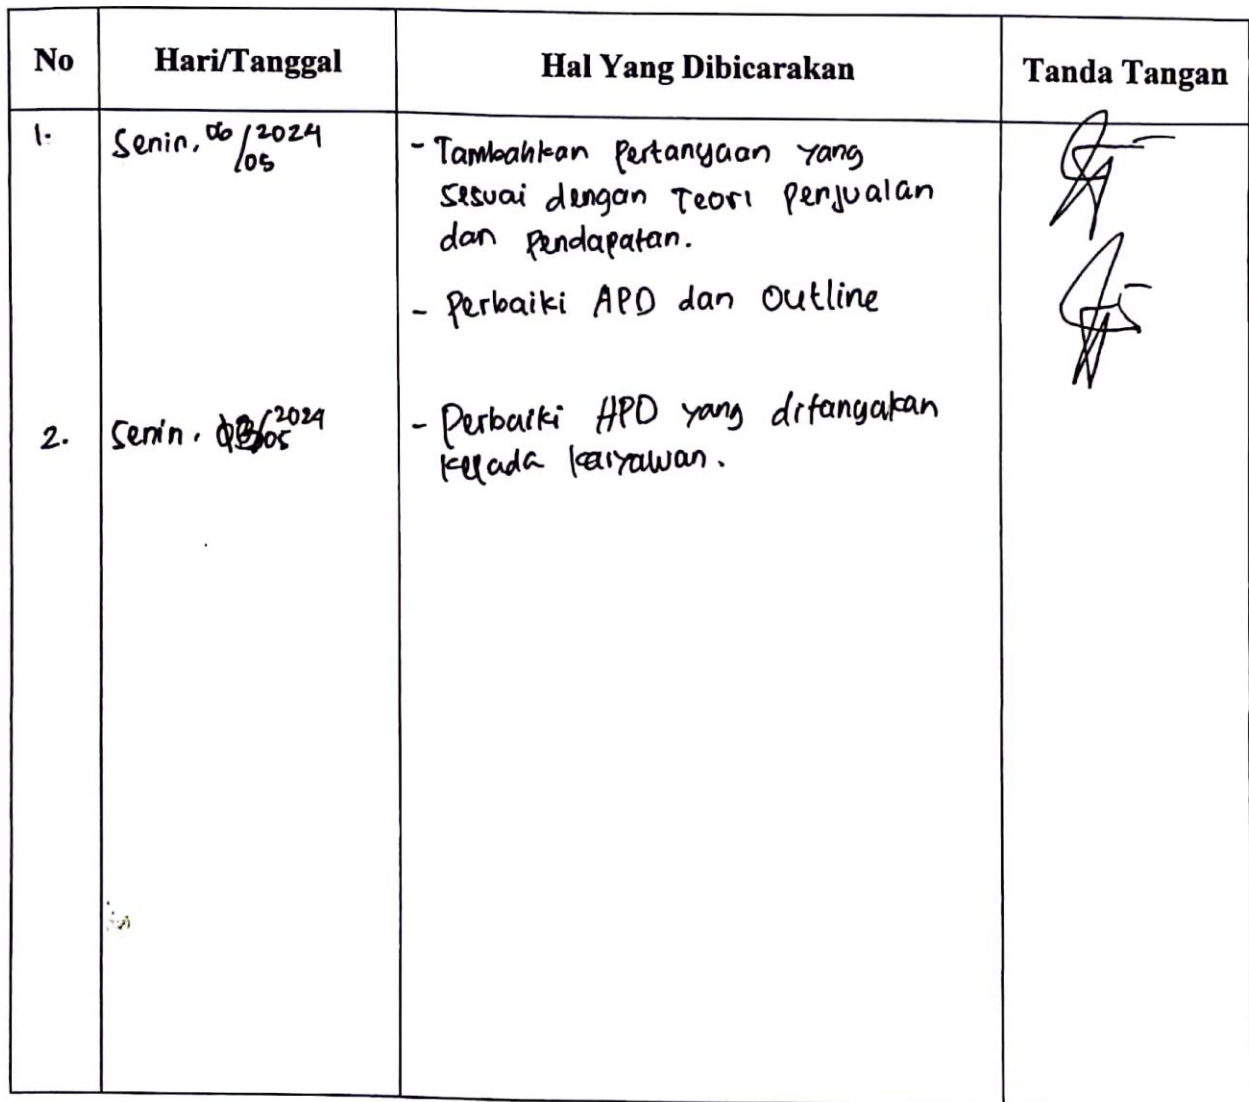 No Hari/Tanggal Hal Yang Dibicarakan Tanda Tangan
1. Senin, 06/05 2024 - Tambahkan Pertanyaan yang
sesuai dengan Teori Penjualan
dan Pendapatan.
- Perbaiki APD dan Outline
2. Senin, 13/05 2024 - Perbaiki APD yang ditanyakan
kepada karyawan.